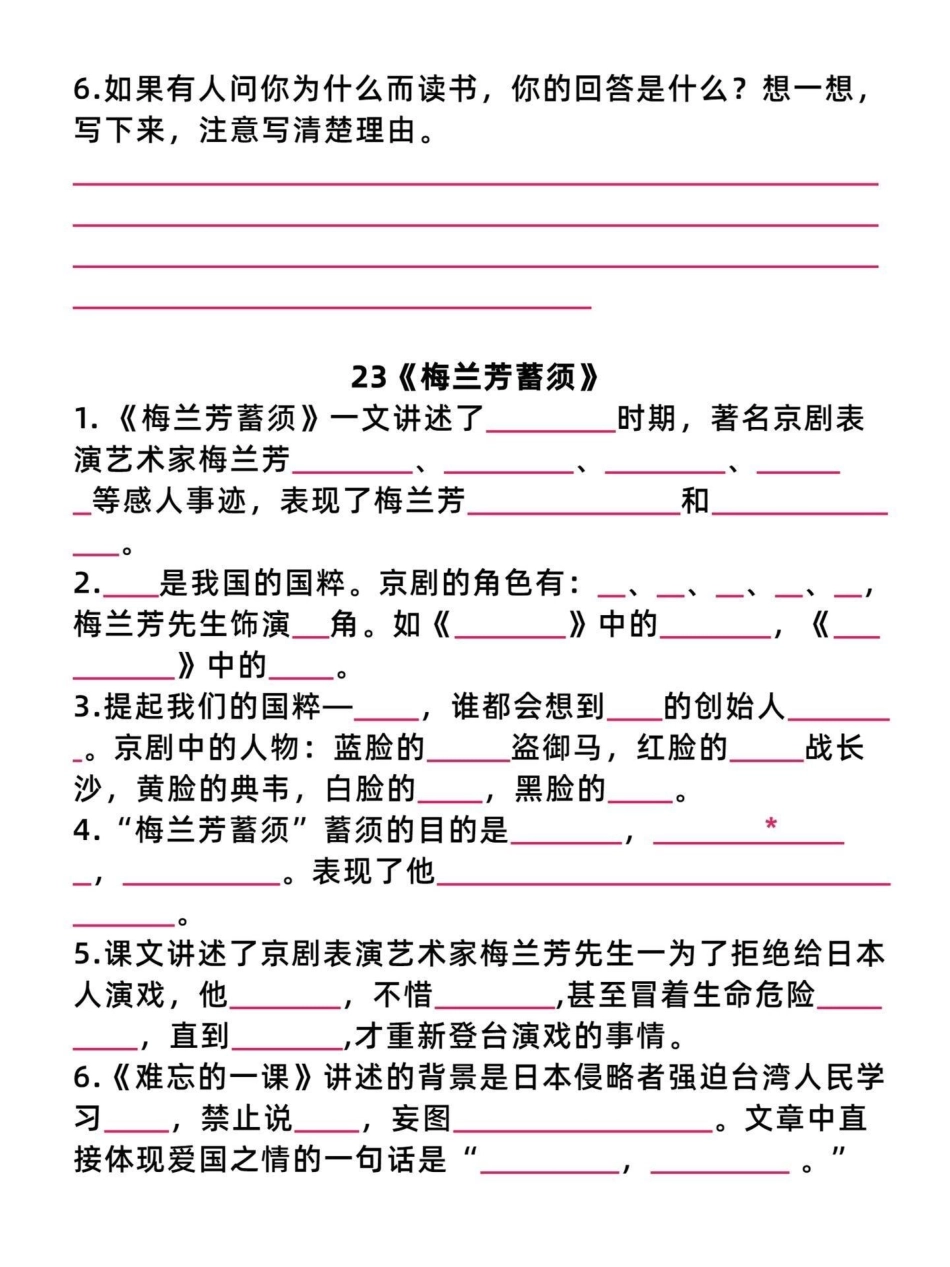 6.如果有人问你为什么而读书，你的回答是什么？想一想，
写下来，注意写清楚理由。
23《梅兰芳蓄须》
1.《梅兰芳蓄须》一文讲述了________时期，著名京剧表
演艺术家梅兰芳________、________、________、______
_等感人事迹，表现了梅兰芳______________和____________
___。
2.____是我国的国粹。京剧的角色有：__、__、__、__、__，
梅兰芳先生饰演__角。如《_______》中的_______，《___
_______》中的____。
3.提起我们的国粹—____，谁都会想到____的创始人_______
_。京剧中的人物：蓝脸的_____盗御马，红脸的_____战长
沙，黄脸的典韦，白脸的____，黑脸的____。
4.“梅兰芳蓄须”蓄须的目的是_______，_______*_____
_，__________。表现了他______________________________
_______。
5.课文讲述了京剧表演艺术家梅兰芳先生一为了拒绝给日本
人演戏，他_______，不惜________,甚至冒着生命危险____
____，直到_______,才重新登台演戏的事情。
6.《难忘的一课》讲述的背景是日本侵略者强迫台湾人民学
习____，禁止说____，妄图_________________。文章中直
接体现爱国之情的一句话是“_________，_________。”